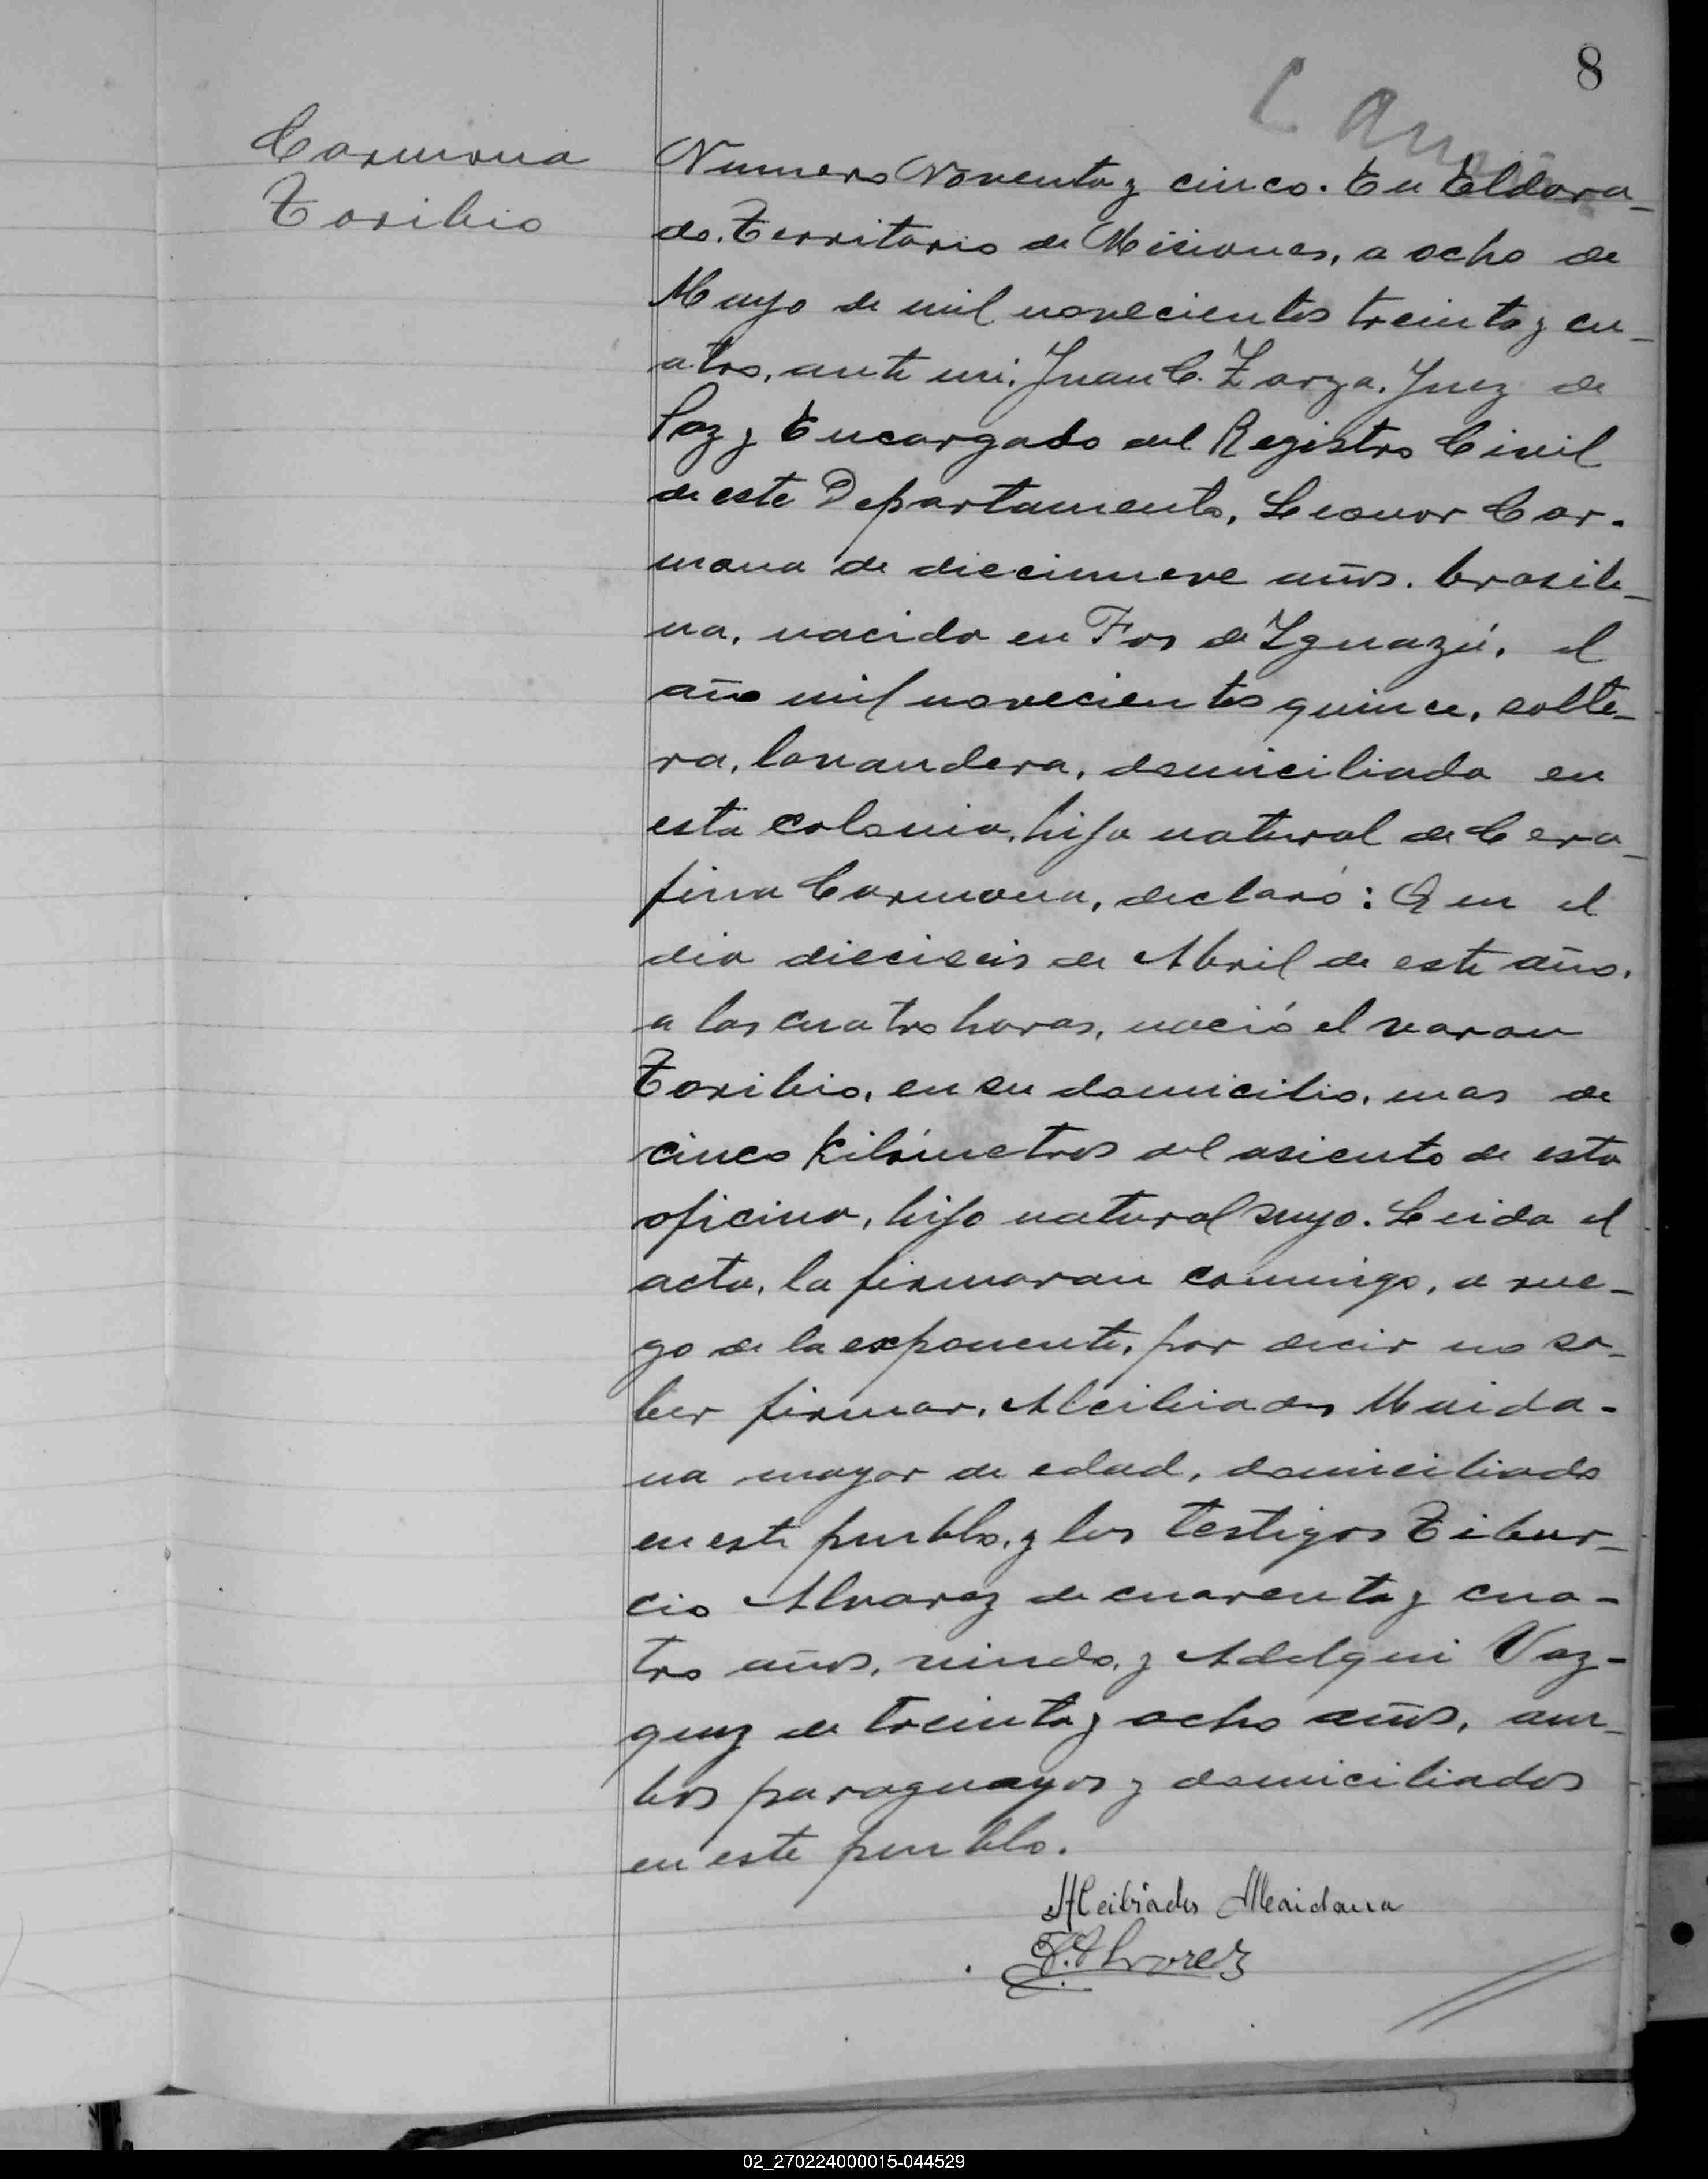 8
Carmona
Toribio
Numero Noventa y cinco. En Eldora_
do. Territorio de Misiones, a ocho de
Mayo de mil novecientos treinta y cu_
atro, ante mi, Juan C. Zarza. Juez de
Paz y Encargado del Registro Civil
de este Departamento, Leonor Car-
mona de diecinueve años. brasile_
na, nacida en Fos de Yguazú, el
año mil novecientos quince, solte_
ra, lavandera, domiciliada en
esta colonia, hija natural de Cera_
fina Carmona, declaró: Q en el
dia dieciseis de Abril de este año,
a las cuatro horas, nació el varon
Toribio, en su domicilio, mas de
cinco kilómetros del asiento de esta
oficina, hijo natural suyo. Leida el
acta, la firmaran conmigo, a rue_
go de la exponente, por decir no sa_
ber firmar, Alcibiades Maida-
na mayor de edad, domiciliado
en este pueblo, y los testigos Tibur_
cio Alvarez de cuarenta y cua-
tro años, viudo, y Adelqui Vaz-
quez de treinta y ocho años, am_
bos paraguayos y domiciliados
en este pueblo.
Alcibiades Maidana
T. Alvarez
02_270224000015-044529